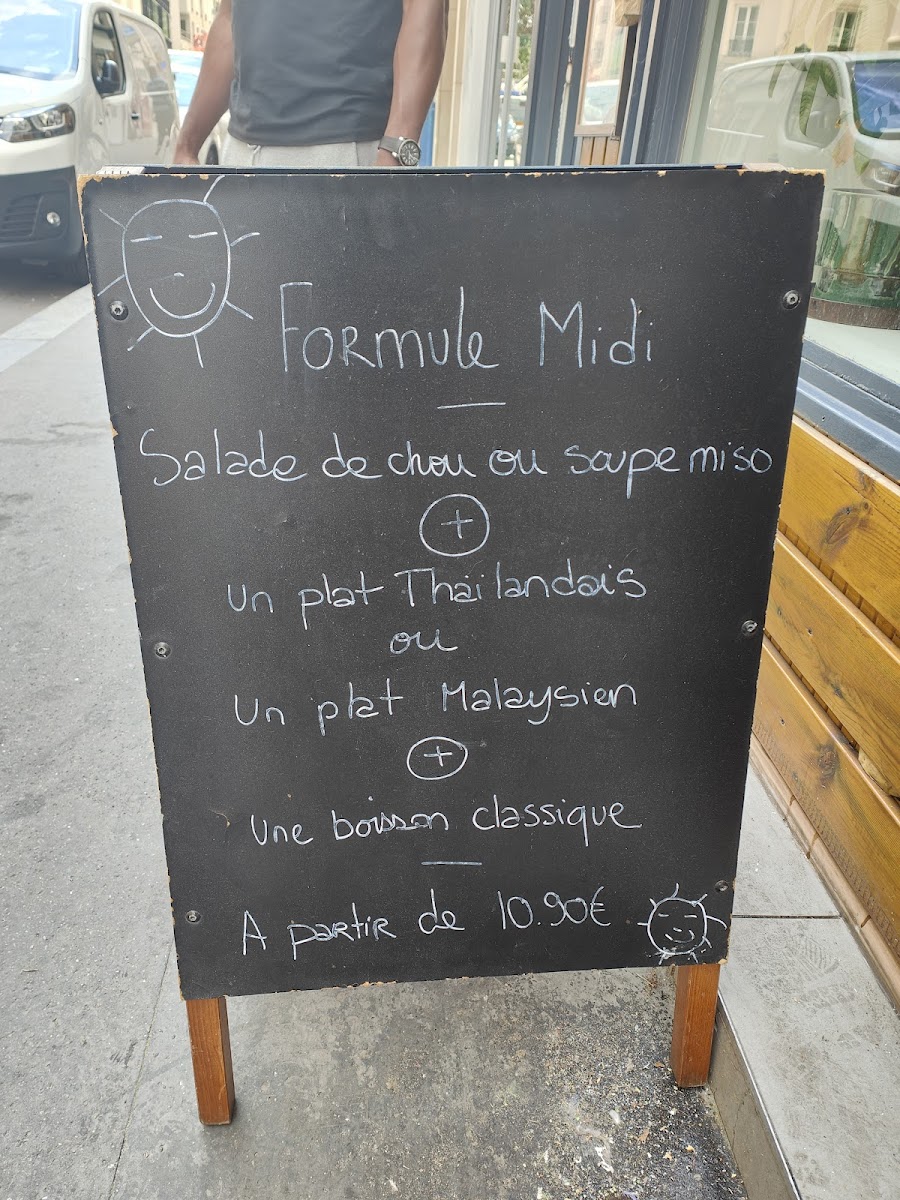 Formule Midi
Salade de chou ou soupe miso
+
Un plat Thaïlandais
ou
Un plat Malaysien
+
Une boisson classique
A partir de 10.90€